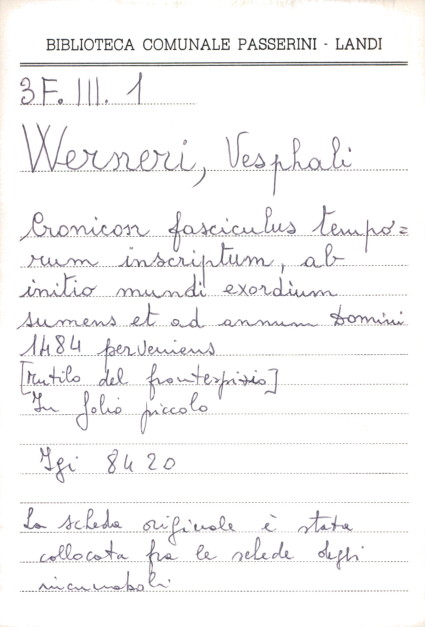 BIBLIOTECA COMUNALE PASSERINI - LANDI
3F. III. 1
Werneri, Vesphali
Cronicon fasciculus tempo=
rum inscriptum, ab
initio mundi exordium
sumens et ad annum Domini
1484 perveniens
[Mutilo del frontespizio]
In folio piccolo
Igi 8420
La scheda originale è stata
collocata fra le schede degli
incunaboli.